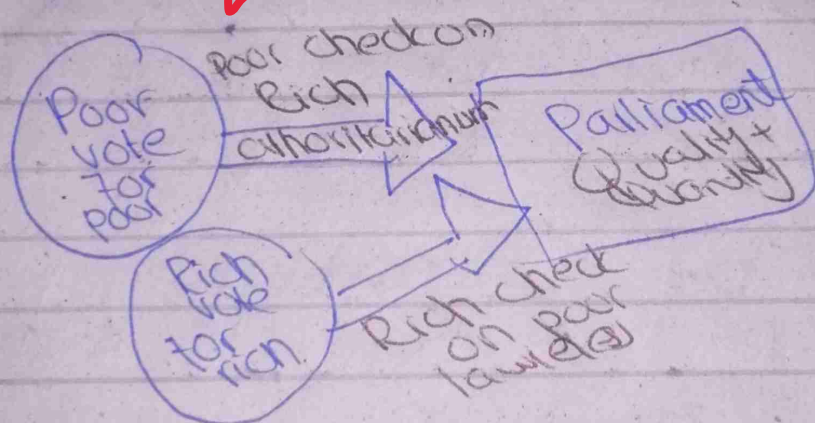 Poor
vote
for
poor
Poor check on
Rich
athoritarianum
Parliament
Quality +
Quantity
Rich
vote
for
rich
Rich check
on poor